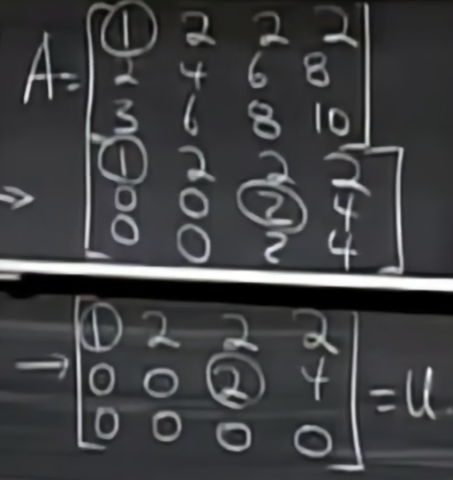 A = [ 1 2 2 2
2 4 6 8
3 6 8 10 ]
→ [ 1 2 2 2
0 0 2 4
0 0 2 4 ]
→ [ 1 2 2 2
0 0 2 4
0 0 0 0 ] = U.